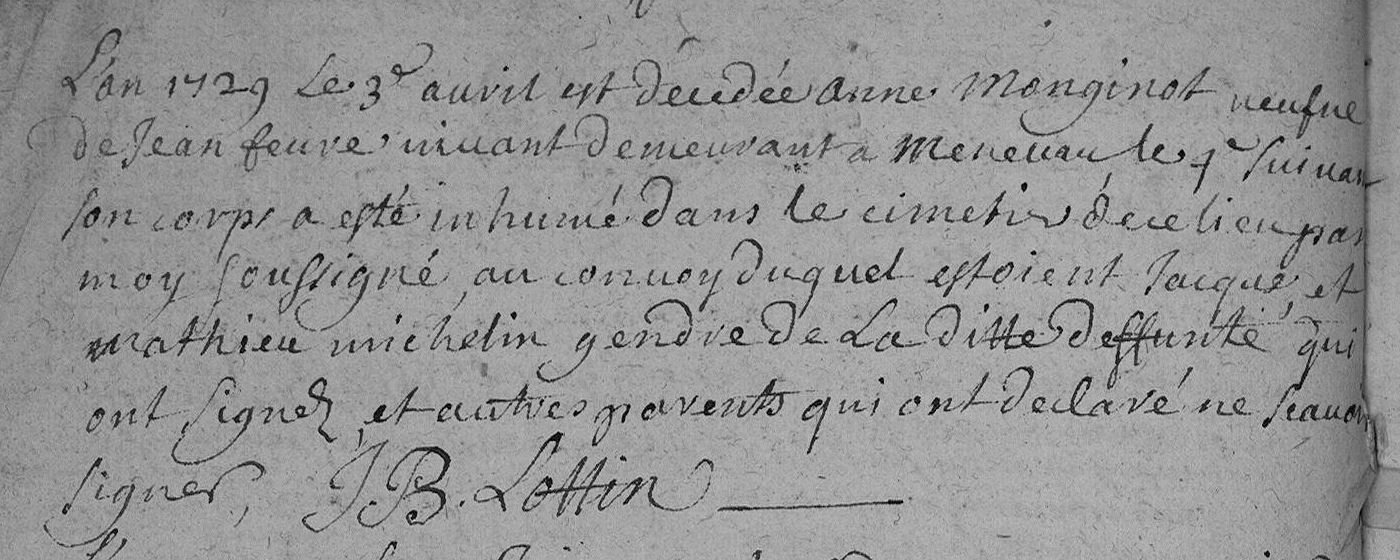 L'an 1729 Le 3e auril est decedée anne Monginot veufue
de Jean feure viuant demeurant a Meneuau le 4e suiuan
son corps a esté inhumé dans le cimetier de ce lieu par
moy soussigné, au conuoy duquel estoient Jacque, et
mathieu michelin gendre de La ditte deffunte qui
ont signez, et autres parents qui ont declaré ne scauoir
signer, J. B. Lottin